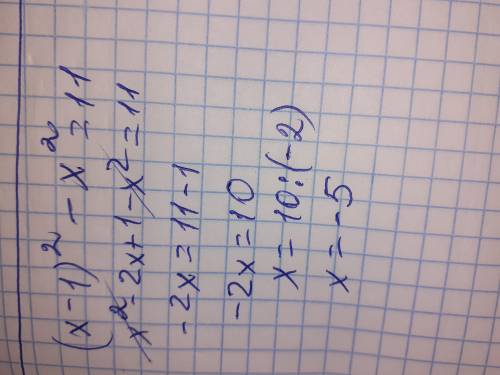 (x-1)² - x² = 11
x² - 2x + 1 - x² = 11
-2x = 11 - 1
-2x = 10
x = 10:(-2)
x = -5